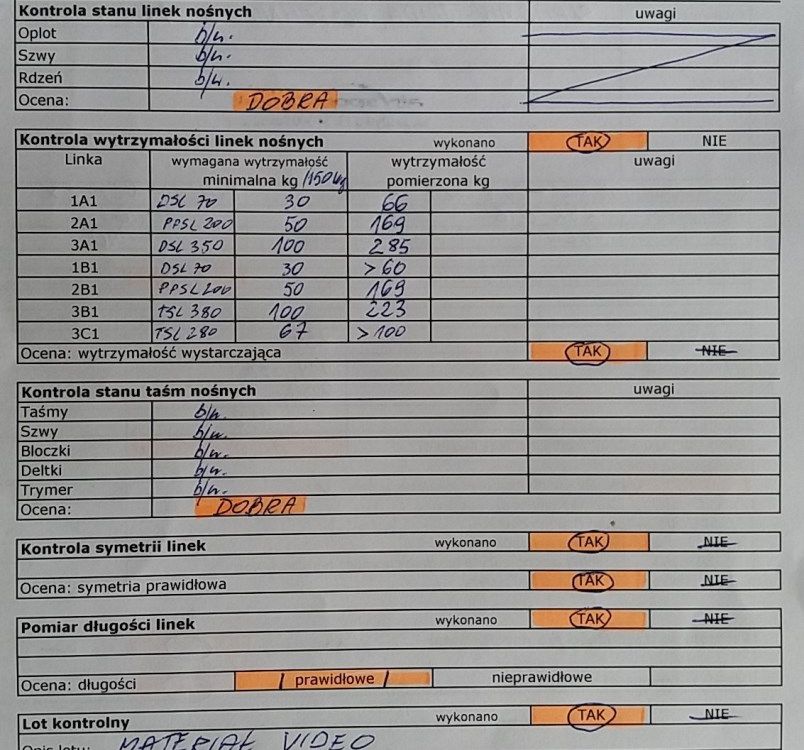 Kontrola stanu linek nośnych uwagi
Oplot b/u.
Szwy b/u.
Rdzeń b/u.
Ocena: DOBRA
Kontrola wytrzymałości linek nośnych wykonano TAK NIE
Linka wymagana wytrzymałość wytrzymałość uwagi
minimalna kg /150 kg pomierzona kg
1A1 DSL 70 30 66
2A1 PPSL 200 50 169
3A1 DSL 350 100 285
1B1 DSL 70 30 >60
2B1 PPSL 200 50 169
3B1 TSL 380 100 223
3C1 TSL 280 67 >100
Ocena: wytrzymałość wystarczająca TAK NIE
Kontrola stanu taśm nośnych uwagi
Taśmy b/u.
Szwy b/u.
Bloczki b/u.
Deltki b/u.
Trymer b/u.
Ocena: DOBRA
Kontrola symetrii linek wykonano TAK NIE
Ocena: symetria prawidłowa TAK NIE
Pomiar długości linek wykonano TAK NIE
Ocena: długości / prawidłowe / nieprawidłowe
Lot kontrolny wykonano TAK NIE
Opis lotu: MATERIAŁ VIDEO